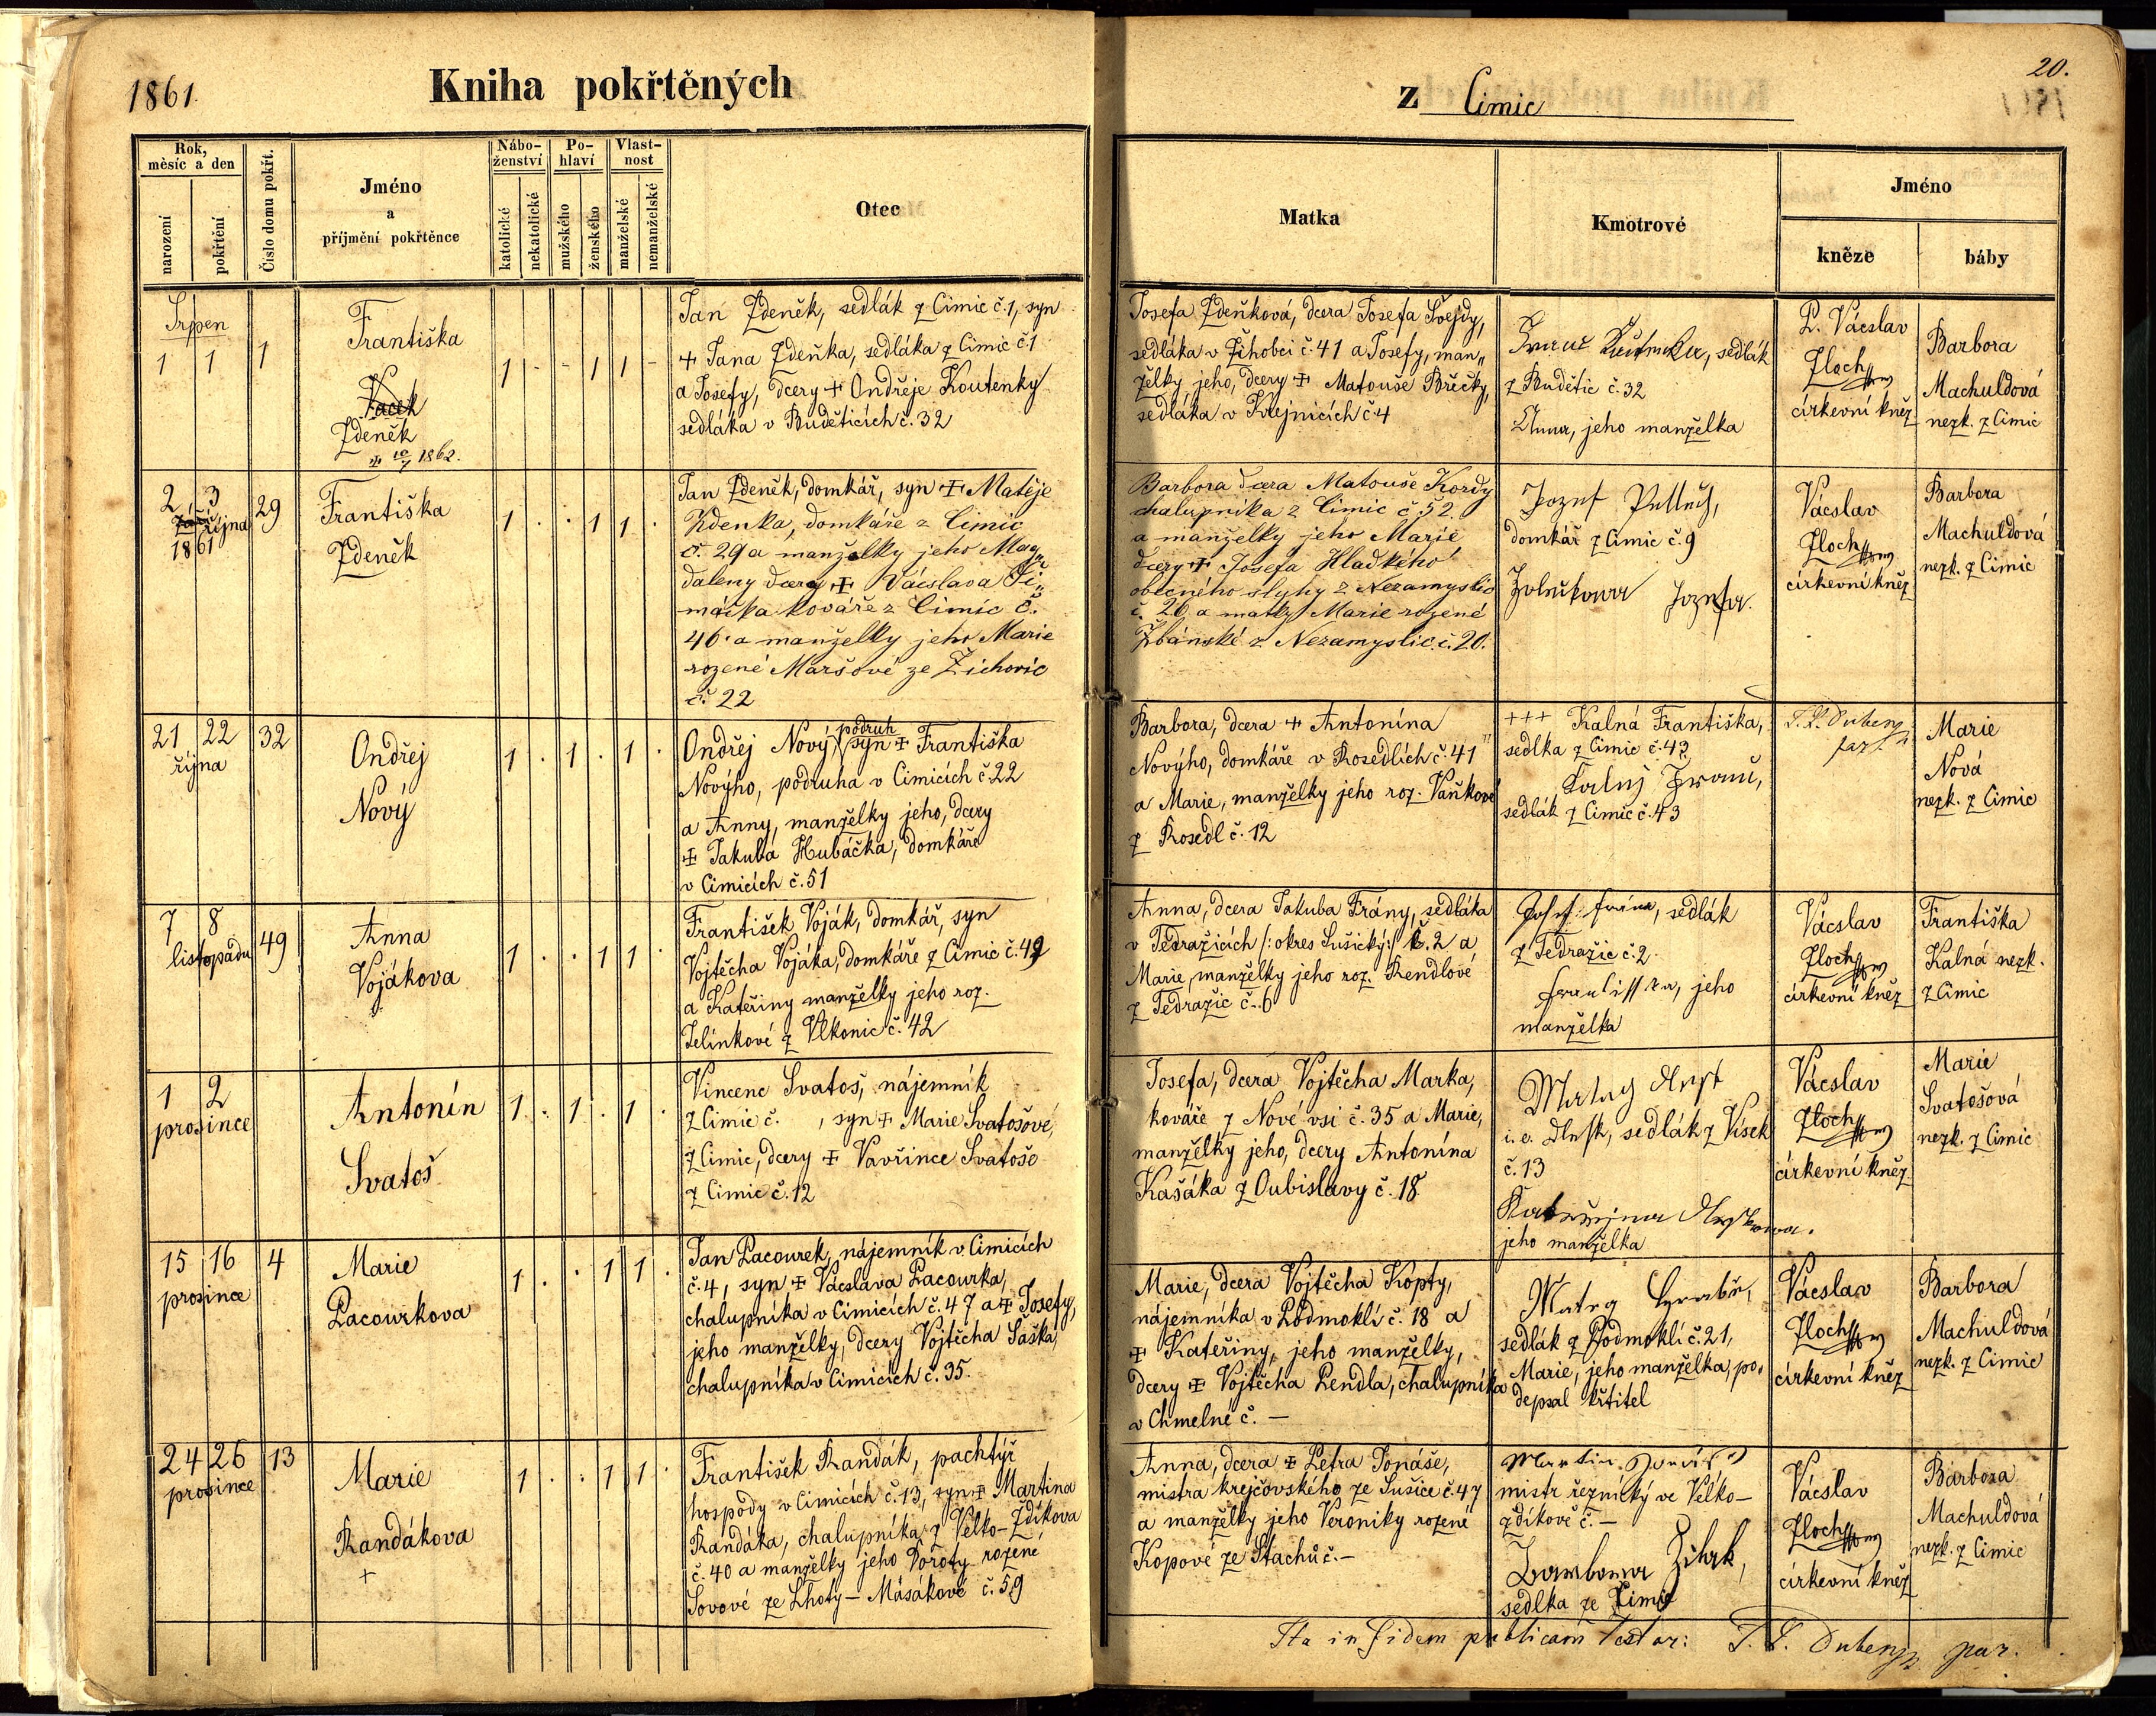 1861.
Kniha pokřtěných
z Cimic
20.
Rok, měsíc a den
narození
pokřtění
Číslo domu pokřt.
Jméno
a
příjmění pokřtěnce
Nábo-
ženství
katolické
nekatolické
Po-
hlaví
mužského
ženského
Vlast-
nost
manželské
nemanželské
Otec
Matka
Kmotrové
Jméno
kněze
báby
Srpen
1 1 1
Františka
Vacek
Zdeněk
10/7 1862.
1 - - 1 1 -
Jan Zdeněk, sedlák z Cimic č. 1, syn
+ Jana Zdeňka, sedláka z Cimic č. 1
a Josefy, dcery + Ondřeje Koutenky
sedláka v Buděticích č. 32
Josefa Zdeňková, dcera Josefa Švejdy,
sedláka v Žihobci č. 41 a Josefy, man„
želky jeho, dcery + Matouše Břečky,
sedláka v Krejnicích č. 4
sedlák
z Budětic č. 32
Anna, jeho manželka
P. Vácslav
Zloch
církevní kněz
Barbora
Machuldová
nezk. z Cimic
2 3 29
Září
října
1861
Františka
Zdeněk
1 . . 1 1 .
Jan Zdeněk, domkář, syn + Matěje
Zdenka, domkáře z Cimic
č. 29 a manželky jeho Mag„
daleny dcery + Vácslava Ši„
máčka kováře z Cimic č.
46. a manželky jeho Marie
rozené Maršové ze Žichovic
č. 22
Barbora dcera Matouše Kordy
chalupníka z Cimic č. 52
a manželky jeho Marie
dcery + Josefa Hladkého
obecného sluhy z Nezamyslic
č. 26 a matky Marie rozené
Žbánské z Nezamyslic č. 20.
Jozef
domkář z Cimic č. 9
Jozefa.
Vácslav
Zloch
církevní kněz
Barbora
Machuldová
nezk. z Cimic
21 22 32
října
Ondřej
Nový
1 . 1 . 1 .
podruh
Ondřej Nový, syn + Františka
Novýho, podruha v Cimicích č. 22
a Anny, manželky jeho, dcery
+ Jakuba Hubáčka, domkáře
v Cimicích č. 51
Barbora, dcera + Antonína
Novýho, domkáře v Rosedlích č. 41
a Marie, manželky jeho roz. Vaňkové
z Rosedl č. 12
+++ Kalná Františka,
sedlka z Cimic č. 43
Kalný Franc,
sedlák z Cimic č. 43
T. L. Dubený
far.
Marie
Nová
nezk. z Cimic
7 8 49
listopadu
Anna
Vojákova
1 . . 1 1 .
František Voják, domkář, syn
Vojtěcha Vojáka, domkáře z Cimic č. 49
a Kateřiny manželky jeho roz.
Jelínkové z Vlkonic č. 42
Anna, dcera Jakuba Frány, sedláka
v Tedražicích /: okres Sušický :/ č. 2 a
Marie, manželky jeho roz. Rendlové
z Tedražic č. 6
Josef Frána, sedlák
z Tedražic č. 2.
Františka, jeho
manželka
Vácslav
Zloch
církevní kněz
Františka
Kalná nezk.
z Cimic
1 2
prosince
Antonín
Svatoš
1 . 1 . 1 .
Vincenc Svatoš, nájemník
z Cimic č. , syn + Marie Svatošové,
z Cimic, dcery + Vavřince Svatoše
z Cimic č. 12
Josefa, dcera Vojtěcha Marka,
kováře z Nové vsi č. 35 a Marie,
manželky jeho, dcery Antonína
Kašáka z Oubislavy č. 18
sedlák z Vísek
č. 13
jeho manželka
Vácslav
Zloch
církevní kněz
Marie
Svatošová
nezk. z Cimic
15 16 4
prosince
Marie
Pacourkova
1 . . 1 1 .
Jan Pacourek, nájemník v Cimicích
č. 4, syn + Vácslava Pacourka,
chalupníka v Cimicích č. 47 a + Josefy,
jeho manželky, dcery Vojtěcha Saška,
chalupníka v Cimicích č. 35.
Marie, dcera Vojtěcha Kopty,
nájemníka v Podmoklí č. 18 a
+ Kateřiny, jeho manželky,
dcery + Vojtěcha Pendla, chalupníka
v Chmelné č. —
sedlák z Podmoklí č. 21,
Marie, jeho manželka, po„
depsal křtitel
Vácslav
Zloch
církevní kněz
Barbora
Machuldová
nezk. z Cimic
24 26 13
prosince
Marie
Randákova
+
1 . . 1 1 .
František Randák, pachtýř
hospody v Cimicích č. 13, syn + Martina
Randáka, chalupníka z Velko-Zdíkova
č. 40 a manželky jeho Doroty rozené
Sovové ze Lhoty - Másákové č. 59
Anna, dcera + Petra Jonáše,
mistra krejčovského ze Sušice č. 47
a manželky jeho Veroniky rozené
Kopové ze Stachů č. -
Martin
mistr řeznický ve Velko-
zdíkově č. -
sedlka ze Cimic
Vácslav
Zloch
církevní kněz
Barbora
Machuldová
nezk. z Cimic
Ita in fidem publicam testor: T. L. Dubený par.